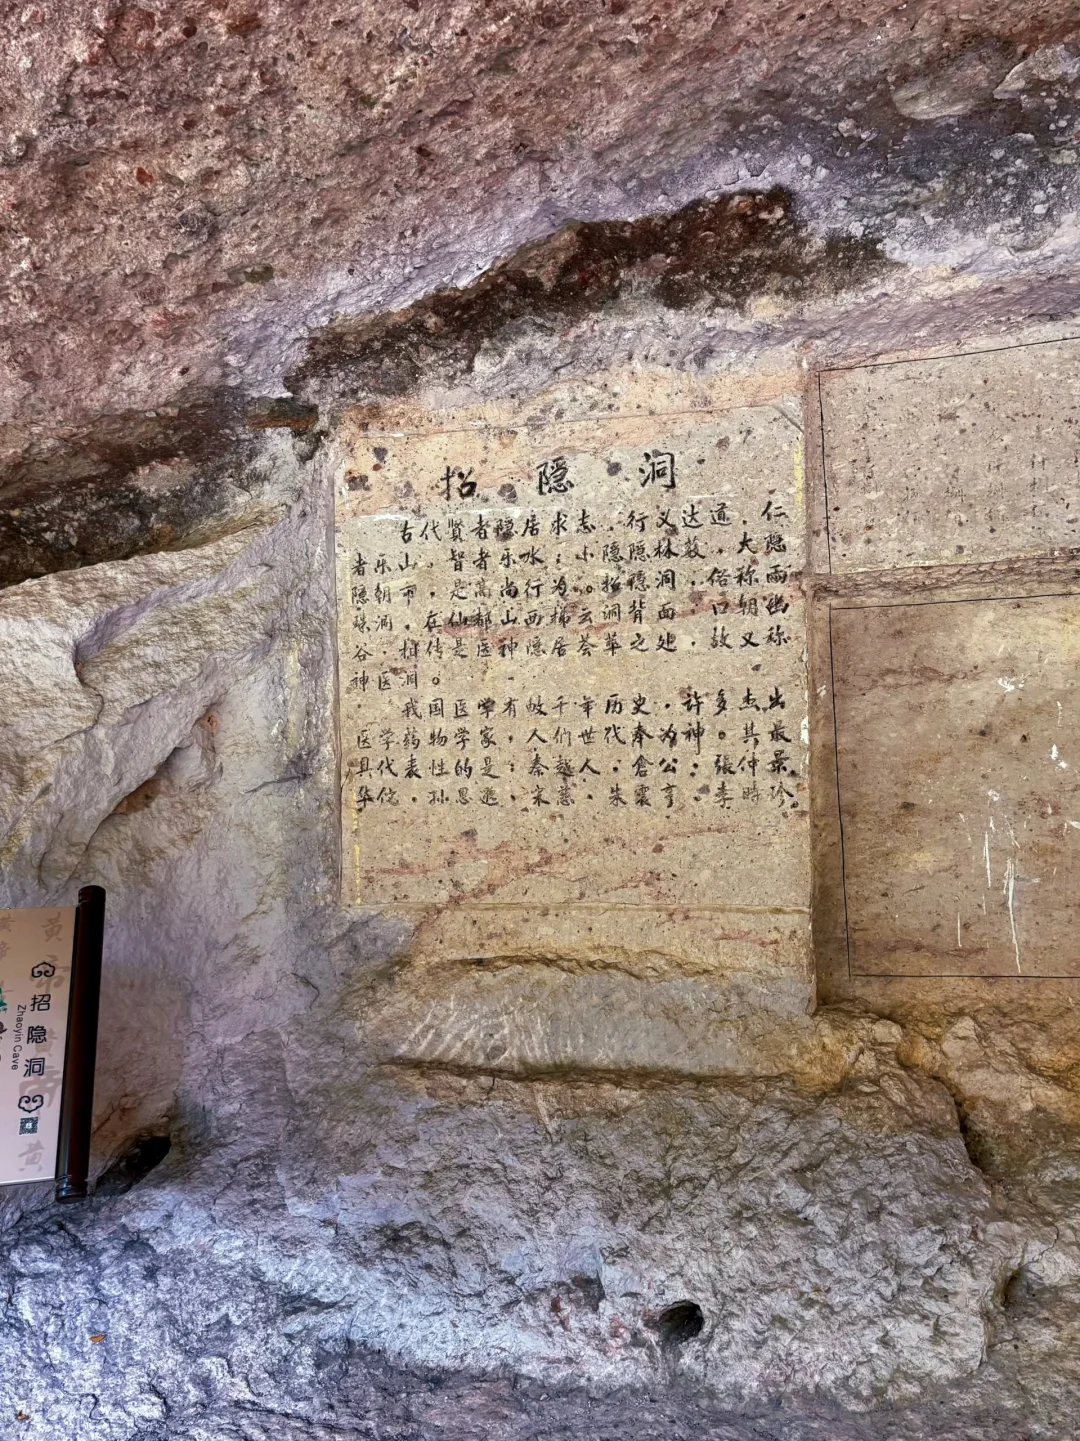 招隐洞
古代贤者隐居求志,行义达道,仁
者乐山,智者乐水;小隐林薮,大隐
朝市,是高尚行为。招隐洞,俗称雨
隐洞,在仙都山西梯云洞背面口朝幽
谷,传是医神隐居荟萃之处,故又称
医神洞。
我国医学有千年历史,许多杰出
医学药物学家,人们世代奉为神。其最
具代表性的是:秦越人,倉公,張仲景,
华佗,孙思邈,宋慈,朱震亨,李时珍。
招隐洞
Zhaoyin Cave